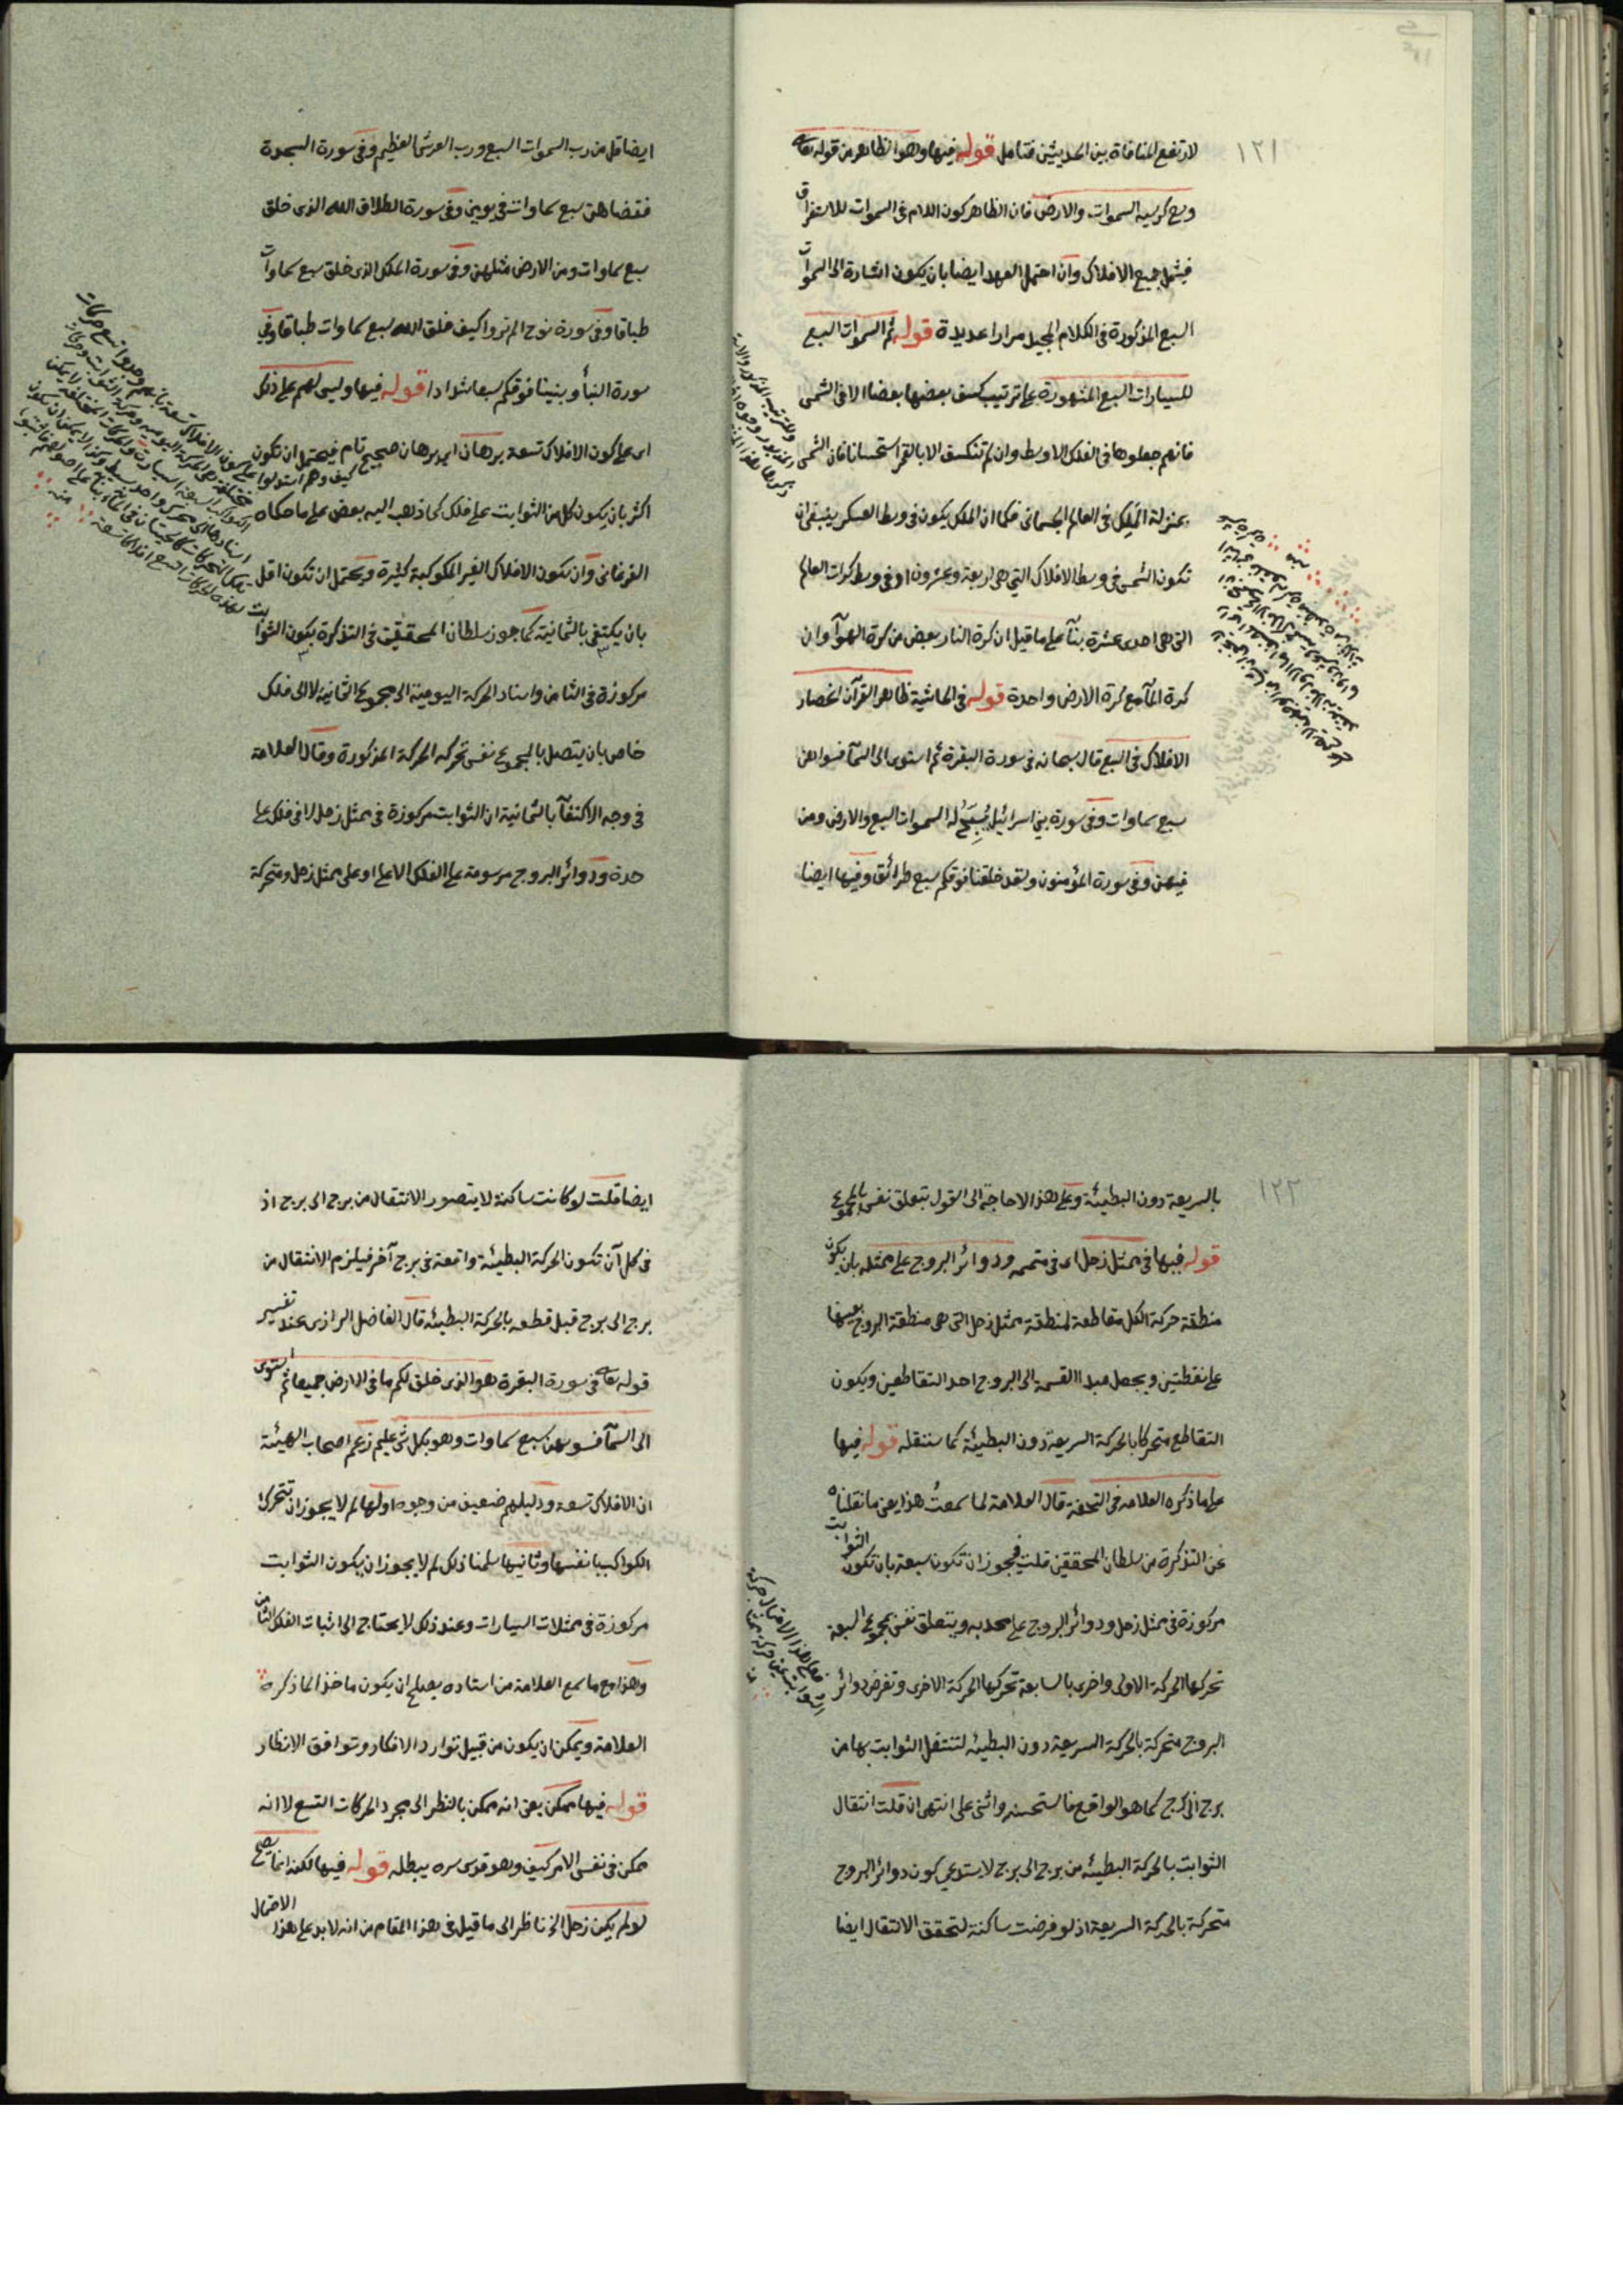 ١٢١
لارتفع المنافاة بين الحديثين فتامل قوله فيها وهو الظاهر من قوله تعالى
وسع كرسيه السموات والارض فان الظاهر كون اللام فى السموات للاستغراق
فيشمل جميع الافلاك وان احتمل العهد ايضا بان يكون اشارة الى السموات
السبع المذكورة فى الكلام المجيد مرارا عديدة قوله ثم السموات السبع
للسيارات السبع المشهورة على ترتيب كسف بعضها بعضا الا فى الشمس
فانهم جعلوها فى الفلك الاوسط وان لم تنكسف الا بالقمر استحسانا فان الشمس
بمنزلة الملك فى العالم الجسمانى فكما ان الملك يكون فى وسط العسكر ينبغى ان
تكون الشمس فى وسط الافلاك التى هى اربعة وعشرون او فى وسط كرات العالم
التى هى احدى عشرة بنآ على ما قيل ان كرة النار بعض من كرة الهوآ وان
كرة المآ مع كرة الارض واحدة قوله فى الحاشية ظاهر القرآن انحصار
الافلاك فى السبع قال سبحانه فى سورة البقرة ثم استوى الى السمآ فسواهن
سبع سماوات وفى سورة بنى اسرائيل يُسَبِّحُ له السموات السبع والارض ومن
فيهن وفى سورة المؤمنون ولقد خلقنا فوقكم سبع طرائق وفيها ايضا
ايضا قل من رب السموات السبع ورب العرش العظيم وفى سورة السجدة
فقضاهن سبع سماوات فى يومين وفى سورة الطلاق الله الذى خلق
سبع سماوات ومن الارض مثلهن وفى سورة الملك الذى خلق سبع سماوات
طباقا وفى سورة نوح الم تروا كيف خلق الله سبع سماوات طباقا وفى
سورة النبأ وبنينا فوقكم سبعا شدادا قوله فيها وليس لهم على ذلك
اى على كون الافلاك تسعة برهان اى برهان صحيح تام فيحتمل ان تكون
اكثر بان يكون كل من الثوابت على فلك كما ذهب اليه بعض على ما حكاه
الفرغانى وان تكون الافلاك الغير المكوكبة كثيرة ويحتمل ان تكون اقل
بان يكتفى بالثمانية كما جوز سلطان المحققين فى التذكرة بكون الثوابت
مركوزة فى الثامن واسناد الحركة اليومية الى مجموع الثمانية لا الى فلك
خاص بان يتصل بالمجموع نفس تحركه الحركة المذكورة وقال العلامة
فى وجه الاكتفآ بالثمانية ان الثوابت مركوزة فى ممثل زحل لا فى فلك على
حدة ودوائر البروج مرسومة على الفلك الاعلى او على ممثل زحل ومتحركة
١٢٢
بالسريعة دون البطيئة وعلى هذا لا حاجة الى القول بتعلق نفس بالمجموع
قوله فيها فى ممثل زحل اى فى متممه ودوائر البروج على ممثله بان يكون
منطقة حركة الكل مقاطعة لمنطقة ممثل زحل التى هى منطقة البروج بعينها
على نقطتين ويجعل مبدا القسمة الى البروج احد التقاطعين ويكون
التقاطع متحركا بالحركة السريعة دون البطيئة كما سننقله قوله فيها
على ما ذكره العلامة فى التحفة قال العلامة لما سمعتُ هذا يعنى ما نقلناه
عن التذكرة من سلطان المحققين قلت فيجوز ان تكون سبعة بان تكون الثوابت
مركوزة فى ممثل زحل ودوائر البروج على محدبه ويتعلق نفس بمجموع السبعة
تحركها الحركة الاولى واخرى بالسابعة تحركها الحركة الاخرى وتفرض دوائر
البروج متحركة بالحركة السريعة دون البطيئة لتنتقل الثوابت بها من
برج الى برج كما هو الواقع فاستحسنه واثنى على انتهى ان قلت انتقال
الثوابت بالحركة البطيئة من برج الى برج لا يستدعى كون دوائر البروج
متحركة بالحركة السريعة اذ لو فرضت ساكنة لتحقق الانتقال ايضا
ايضا قلت لو كانت ساكنة لا يتصور الانتقال من برج الى برج اذ
فى كل آن تكون الحركة البطيئة واقعة فى برج آخر فيلزم الانتقال من
برج الى برج قبل قطعه بالحركة البطيئة قال الفاضل الرازى عند تفسير
قوله تعالى فى سورة البقرة هو الذى خلق لكم ما فى الارض جميعا ثم استوى
الى السمآ فسويهن سبع سماوات وهو بكل شئ عليم زعم اصحاب الهيئة
ان الافلاك تسعة ودليلهم ضعيف من وجوه اولها لم لا يجوز ان تتحرك
الكواكب بانفسها وثانيها سلمنا ذلك لم لا يجوز ان يكون الثوابت
مركوزة فى ممثلات السيارات وعند ذلك لا يحتاج الى اثبات الفلك الثامن
وهذا مع ما سمع العلامة من استاده يصلح ان يكون ماخذا لما ذكره
العلامة ويمكن ان يكون من قبيل توارد الافكار وتوافق الانظار
قوله فيها ممكن يعنى انه ممكن بالنظر الى مجرد الحركات التسع لا انه
ممكن فى نفس الامر كيف وهو قدس سره يبطله قوله فيها لكنه انما يصح
لو لم يكن زحل الخ ناظر الى ما قيل فى هذا المقام من انه لا بد على هذا الاحتمال